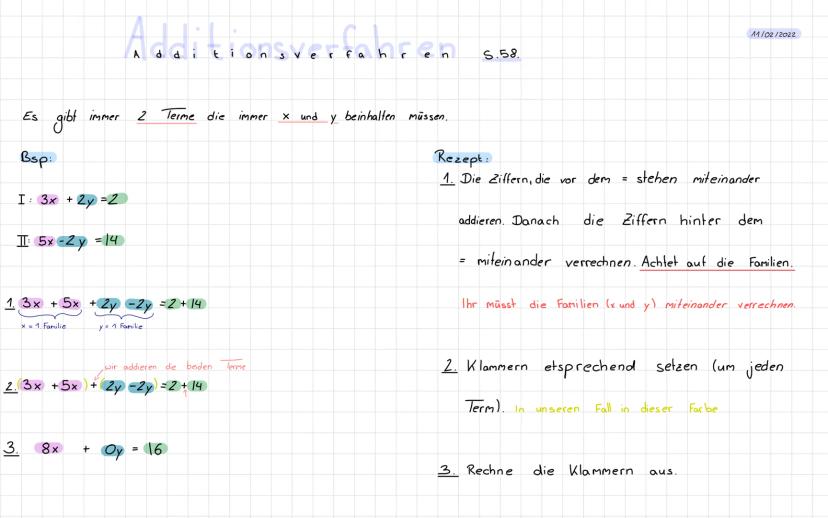 Additionsverfahren S.58.
11/02/2022
Additionsverfahren
Es gibt immer 2 Terme die immer x und y beinhalten müssen.
Bsp:
I: 3x + 2y = 2
II: 5x - 2y = 14
1. 3x + 5x + 2y - 2y = 2 + 14
x = 1. Familie y = 1. Familie
wir addieren die beiden Terme
2. (3x + 5x) + (2y - 2y) = 2 + 14
3. 8x + 0y = 16
Rezept:
1. Die Ziffern, die vor dem = stehen miteinander
addieren. Danach die Ziffern hinter dem
= miteinander verrechnen. Achtet auf die Familien.
Ihr müsst die Familien (x und y) miteinander verrechnen.
2. Klammern etsprechend setzen (um jeden
Term). In unseren Fall in dieser Farbe
3. Rechne die Klammern aus.